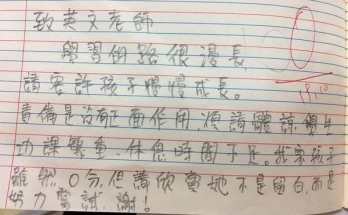 致英文老師
學習的路很漫長
請容許孩子慢慢成長。
責備是沒有正面作用,煩請體諒學生
功課繁重,休息時間不足,我家孩子
雖然0分,但請欣賞他不是留白,而是
努力嘗試,謝!